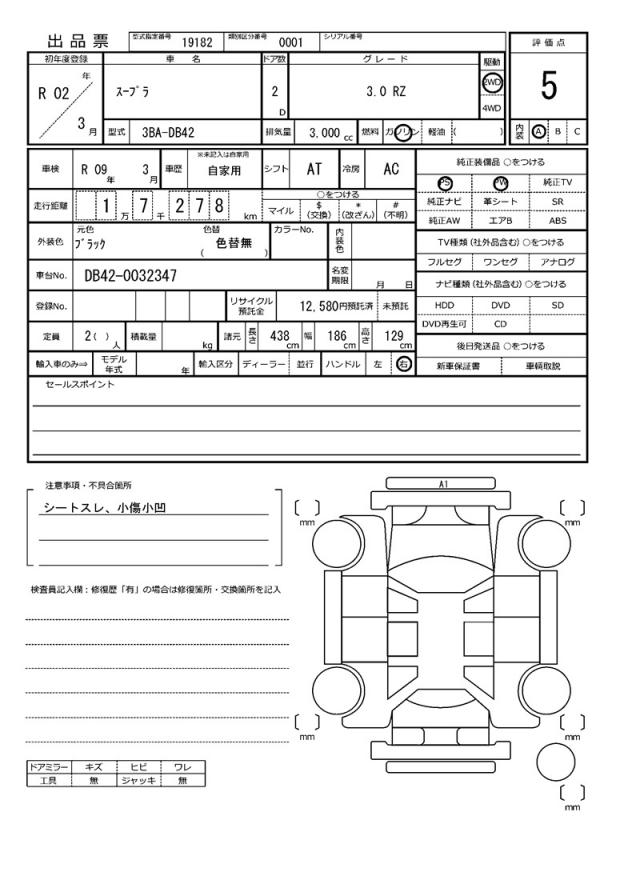 出品票 型式指定番号 19182 類別区分番号 0001 シリアル番号
評価点
初年度登録 車名 ドア数 グレード 駆動
R 02 年 スープラ 2 D 3.0 RZ 2WD 5
4WD
3 月 型式 3BA-DB42 排気量 3,000 cc 燃料 ガソリン 軽油 ( ) 内装 A B C
車検 R 09 年 3 月 車歴 ※未記入は自家用 自家用 シフト AT 冷房 AC 純正装備品 ○をつける
PS PW 純正TV
走行距離 1 万 7 千 2 7 8 km ○をつける 純正ナビ 革シート SR
マイル $ (交換) * (改ざん) # (不明) 純正AW エアB ABS
外装色 元色 ブラック 色替 色替無 ( ) カラーNo. 内装色 TV種類(社外品含む)○をつける
フルセグ ワンセグ アナログ
車台No. DB42-0032347 名変期限 月 日 ナビ種類(社外品含む)○をつける
登録No. リサイクル預託金 12,580円預託済 未預託 HDD DVD SD
DVD再生可 CD
定員 2( ) 人 積載量 kg 諸元 長さ 438 cm 幅 186 cm 高さ 129 cm 後日発送品 ○をつける
輸入車のみ⇒ モデル年式 年 輸入区分 ディーラー 並行 ハンドル 左 右 新車保証書 車輌取説
セールスポイント
注意事項・不具合箇所
シートスレ、小傷小凹
A1
mm mm
検査員記入欄:修復歴「有」の場合は修復箇所・交換箇所を記入
mm mm
ドアミラー キズ ヒビ ワレ
工具 無 ジャッキ 無
mm